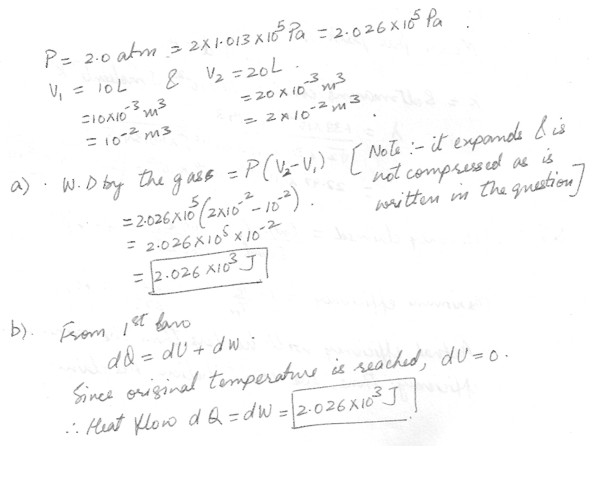 P = 2.0 atm = 2×1.013×10⁵ Pa = 2.026×10⁵ Pa.
V₁ = 10L & V₂ = 20L.
=10×10⁻³ m³ = 20×10⁻³ m³
= 10⁻² m3 = 2×10⁻² m3.
a). W.D by the gass = P(V₂-V₁) [Note :- it expands & is
not compressed as is
written in the question]
= 2.026×10⁵(2×10⁻² - 10⁻²).
= 2.026×10⁵×10⁻²
= 2.026×10³ J
b). From 1st law
dQ = dU + dW.
Since original temperature is reached, dU = 0.
∴ Heat flow dQ = dW = 2.026×10³ J